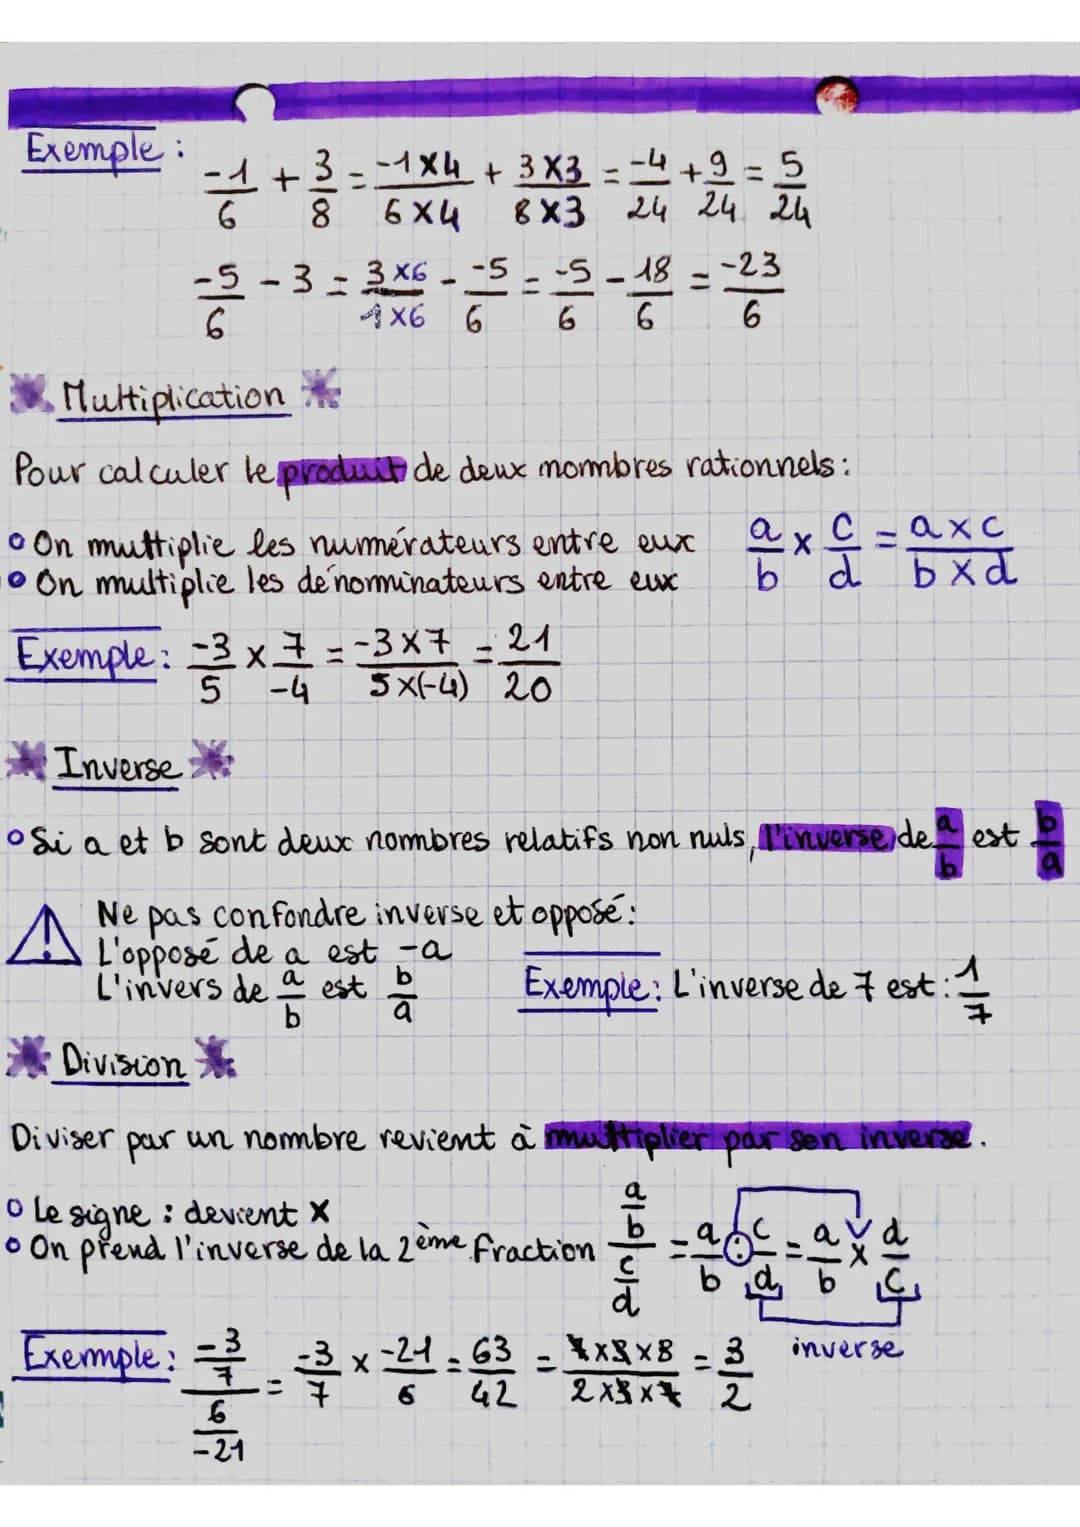 Exemple :
-1/6 + 3/8 = -1×4/6×4 + 3×3/8×3 = -4/24 + 9/24 = 5/24
-5/6 - 3 = 3×6/1×6 - -5/6 = -5/6 - 18/6 = -23/6
Multiplication
Pour calculer le produit de deux nombres rationnels :
• On multiplie les numérateurs entre eux a/b × c/d = a×c/b×d
• On multiplie les dénominateurs entre eux
Exemple : -3/5 × 7/-4 = -3×7/5×(-4) = 21/20
Inverse
• Si a et b sont deux nombres relatifs non nuls, l'inverse de a/b est b/a
Ne pas confondre inverse et opposé :
L'opposé de a est -a
L'invers de a/b est b/a
Exemple : L'inverse de 7 est : 1/7
Division
Diviser par un nombre revient à multiplier par son inverse.
• Le signe : devient ×
• On prend l'inverse de la 2ème fraction (a/b)/(c/d) = a/b : c/d = a/b × d/c
inverse
Exemple : (-3/7)/(6/-21) = -3/7 × -21/6 = 63/42 = 7×3×8/2×3×7 = 3/2